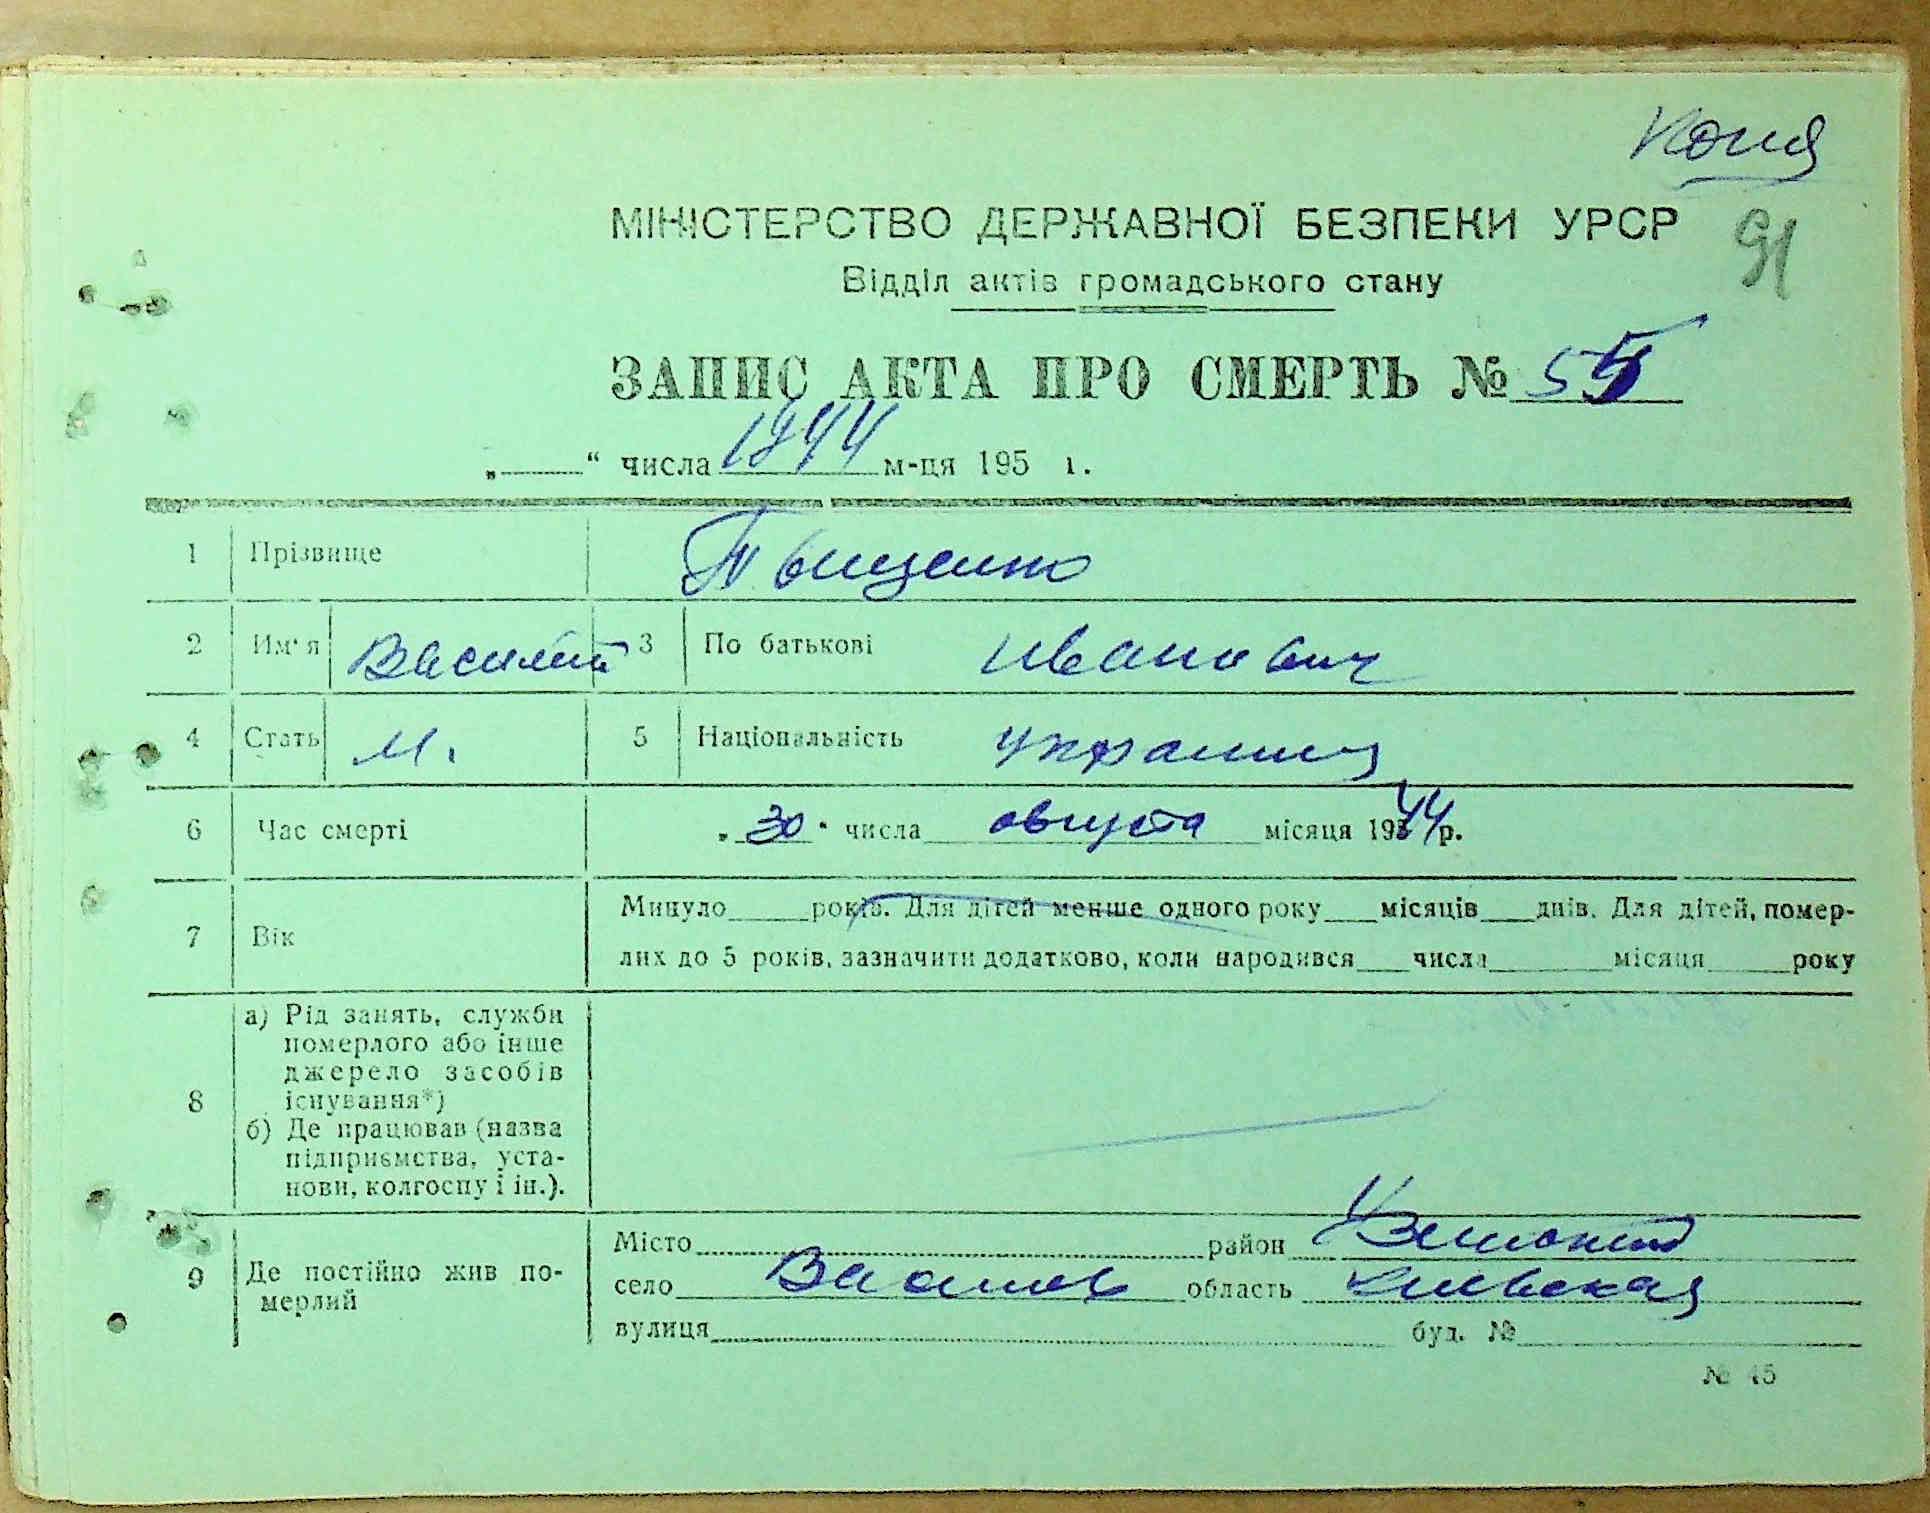 Копія
МІНІСТЕРСТВО ДЕРЖАВНОЇ БЕЗПЕКИ УРСР
91
Відділ актів громадського стану
ЗАПИС АКТА ПРО СМЕРТЬ № 55
„ “ числа 1944 м-ця 195 г.
1 Прізвище Тыщенко
2 Им'я Василий 3 По батькові Иванович
4 Стать М. 5 Національність Украинец
6 Час смерті „30“ числа августа місяця 1944 р.
7 Вік
Минуло років. Для дітей менше одного року місяців днів. Для дітей, помер-
лих до 5 років, зазначити додатково, коли народився числа місяця року
8
а) Рід занять, служби
померлого або інше
джерело засобів
існування*)
б) Де працював (назва
підприємства, уста-
нови, колгоспу і ін.).
9 Де постійно жив по-
мерлий
Місто район
село область Киевская
вулиця буд. №
№ 45